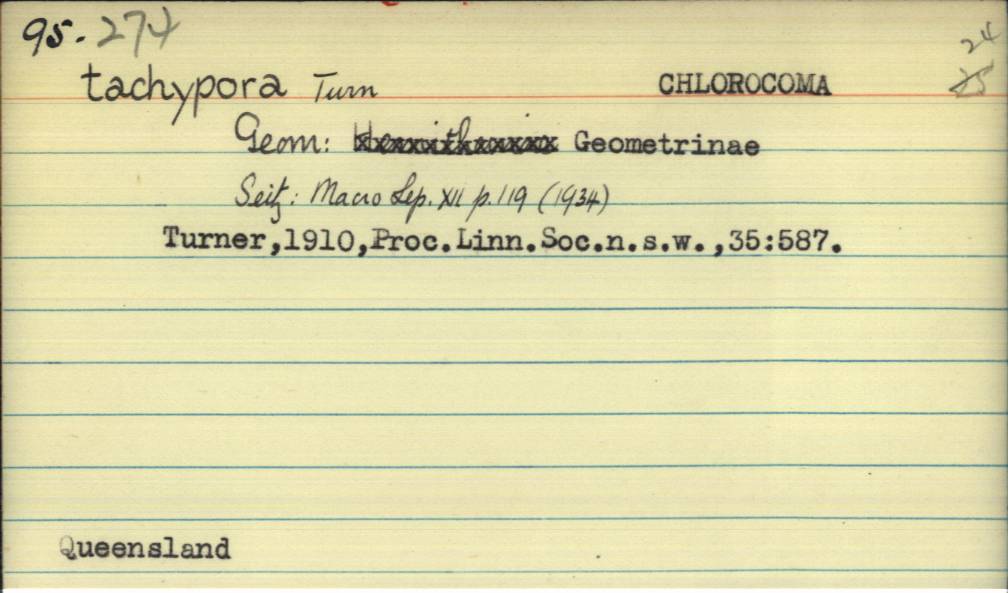 95. 274
24
tachypora Turn CHLOROCOMA 25
Geom: Hemitheinae Geometrinae
Seitz: Macro Lep. XII p. 119 (1934)
Turner,1910,Proc.Linn.Soc.n.s.w.,35:587.
Queensland